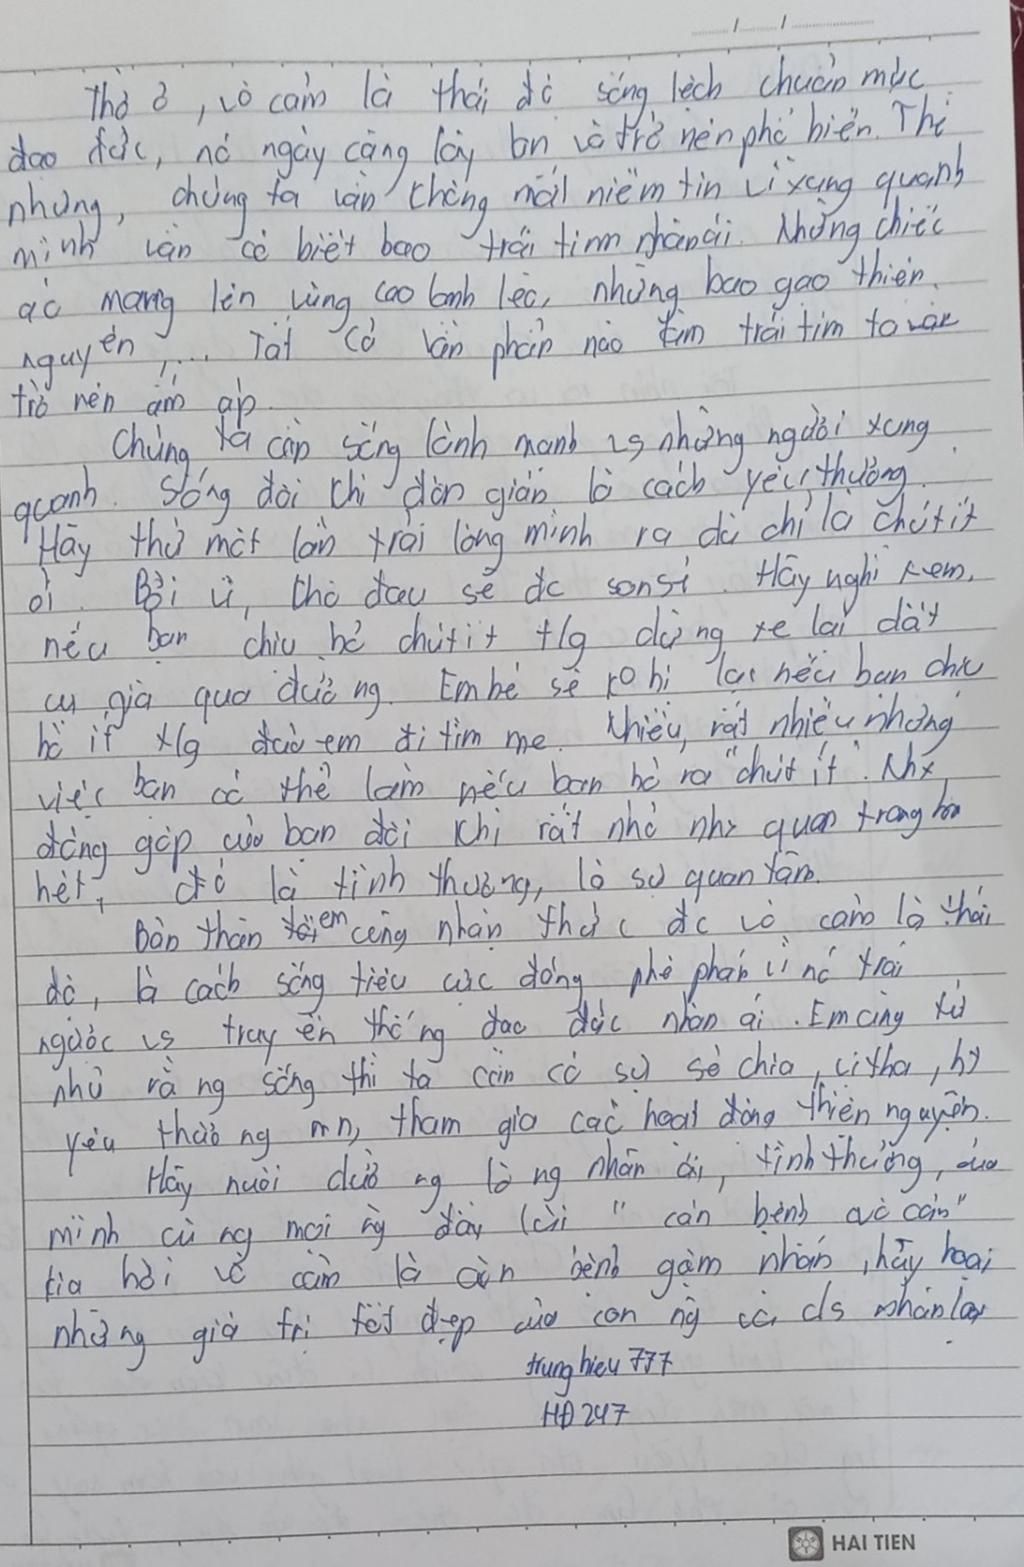 Thờ ơ, vô cảm là thái độ sống lệch chuẩn mực
đạo đức, nó ngày càng lây lan và trở nên phổ biến. Thế
nhưng, chúng ta vẫn không mất niềm tin vì xung quanh
mình vẫn có biết bao trái tim nhân ái. Những chiếc
áo mang lên vùng cao lạnh lẽo, những bao gạo thiện
nguyện,... Tất cả vẫn phần nào trái tim
trở nên ấm áp
Chúng ta cần sống lành mạnh vs những người xung
quanh. Sống đôi khi đơn giản là cách yêu thương.
Hãy thử một lần trải lòng mình ra dù chỉ là chút ít
ỏi. Bởi vì, khổ đau sẽ đc san sẻ. Hãy nghĩ xem,
nếu bạn chịu bỏ chút ít t/g dừng xe lại dắt
cụ già qua đường. Em bé sẽ ko bị lạc nếu bạn chịu
bỏ ít t/g đưa em đi tìm mẹ. Nhiều, rất nhiều những
việc bạn có thể làm nếu bạn bỏ ra "chút ít". Như
đóng góp của bạn đôi khi rất nhỏ như quan trọng hơn
hết, đó là tình thương, là sự quan tâm.
Bản thân em cũng nhận thức đc vô cảm là thái
độ, là cách sống tiêu cực đáng phê phán vì nó trái
ngược vs truyền thống đạo đức nhân ái. Em cũng tự
nhủ rằng sống thì ta cần có sự sẻ chia, vị tha, hy
yêu thương mn, tham gia các hoạt động thiện nguyện.
Hãy nuôi dưỡng lòng nhân ái, tình thương, của
mình cùng mọi ng đẩy lùi "căn bệnh vô cảm"
kia bởi vô cảm là căn bệnh gặm nhấm, hủy hoại
những giá trị tốt đẹp của con ng và đs nhân loại
trung hieu 777
HĐ 247
HAI TIEN